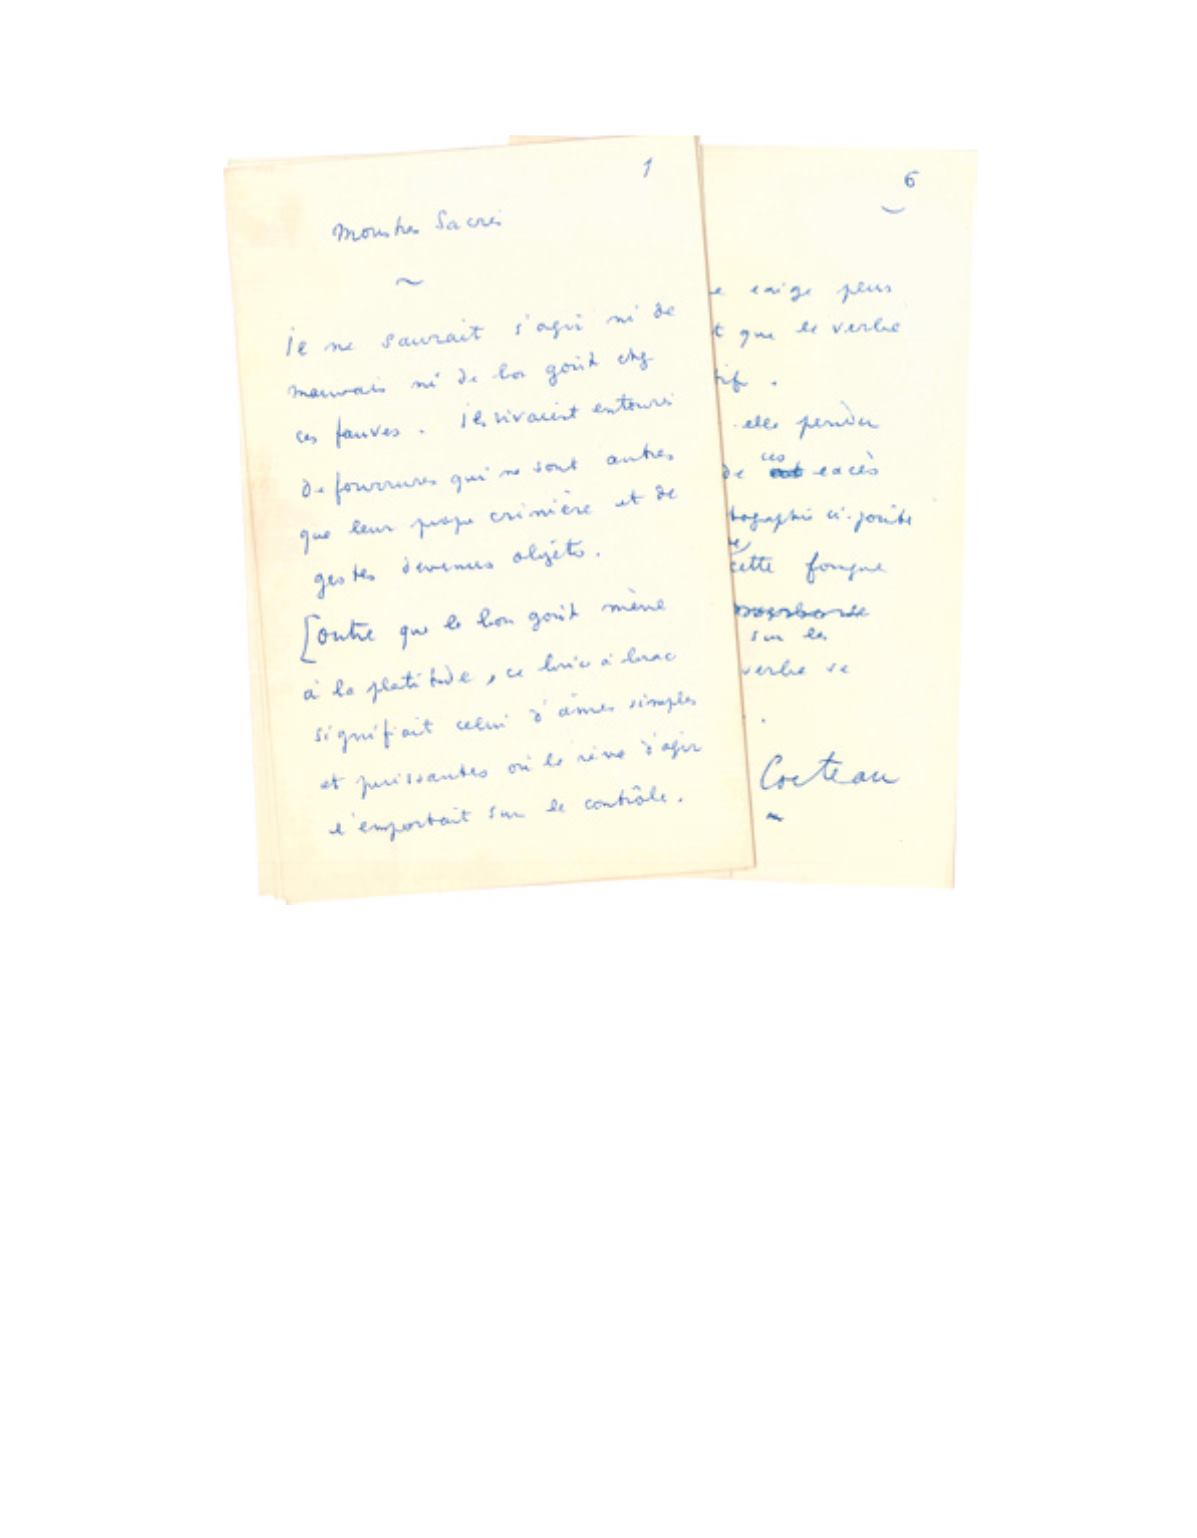 1
Monstres Sacrés
~
Il ne saurait s'agir ni de
mauvais ni de bon goût chez
ces fauves. Ils vivaient entourés
de fourrures qui ne sont autres
que leur propre crinière et de
gestes devenus objets.
[Outre que le bon goût mène
à la platitude, ce bric à brac
signifiait celui d'âmes simples
et puissantes où le rêve d'agir
l'emportait sur le contrôle.
6
e exige plus
t que le verbe
tif.
elle perdu
ces
de excès
tographie ci-jointe
cette fougue
sur les
verbe se
.
Cocteau